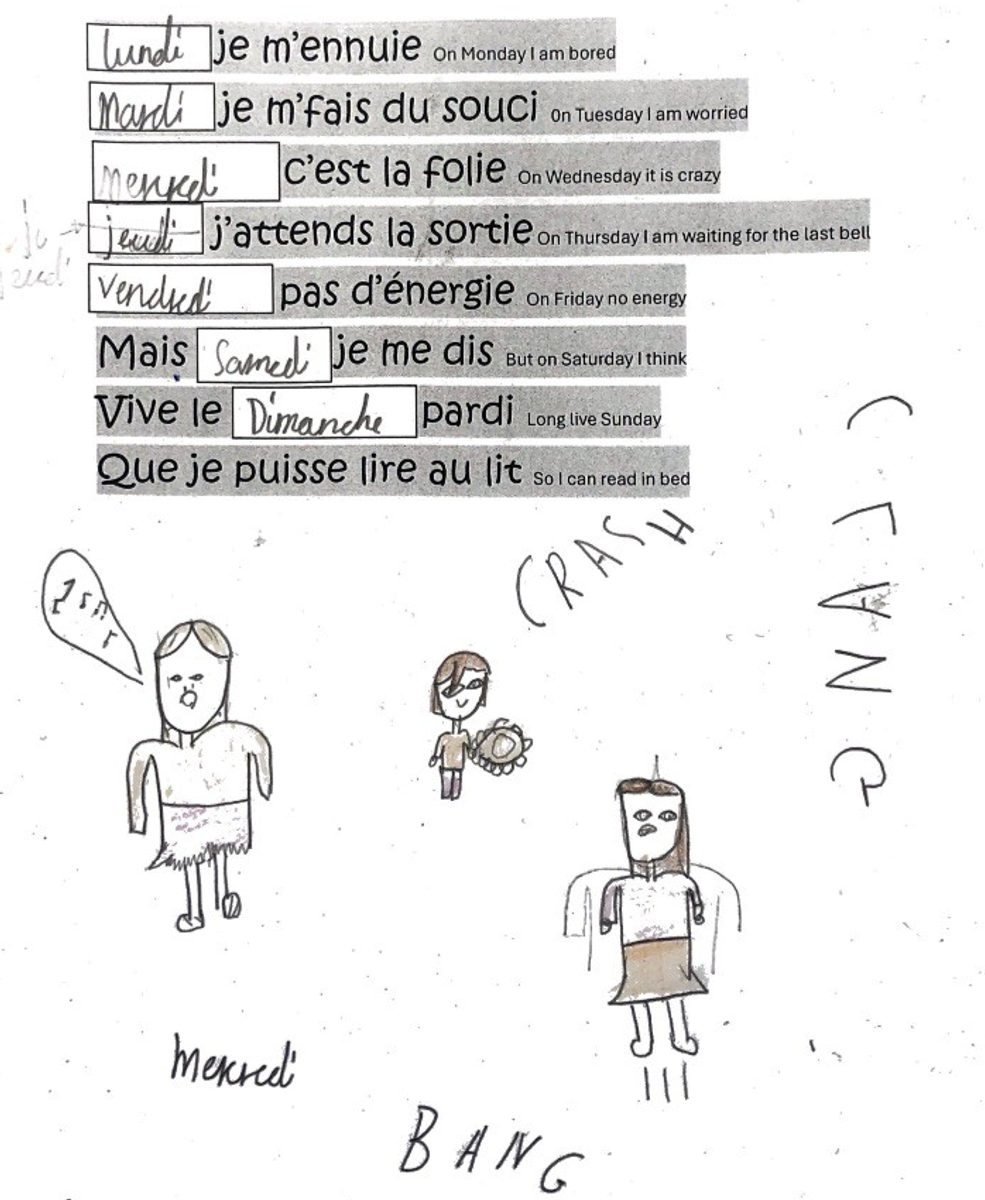 lundi je m'ennuie On Monday I am bored
Mardi je m'fais du souci On Tuesday I am worried
c'est la folie On Wednesday it is crazy
jeudi j'attends la sortie On Thursday I am waiting for the last bell
Vendredi pas d'énergie On Friday no energy
Mais Samedi je me dis But on Saturday I think
Vive le Dimanche pardi Long live Sunday
Que je puisse lire au lit So I can read in bed
CRASH
CLANG
Mercredi
BANG